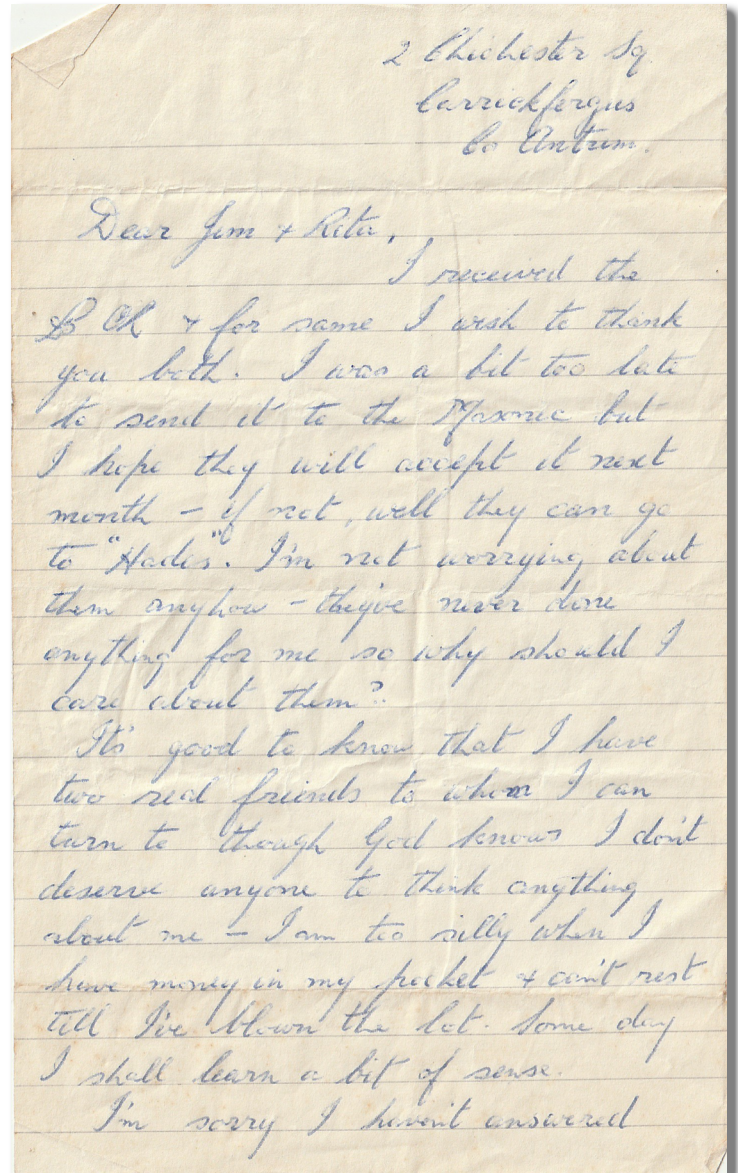 2 Chichester Sq
Carrickfergus
Co Antrim.
Dear Jim + Rita,
I received the
£5 OK + for same I wish to thank
you both. I was a bit too late
to send it to the Masonic but
I hope they will accept it next
month - if not, well they can go
to "Hades". I'm not worrying about
them anyhow - they've never done
anything for me so why should I
care about them?
It's good to know that I have
two real friends to whom I can
turn to though God knows I don't
deserve anyone to think anything
about me - I am too silly when I
have money in my pocket + can't rest
till I've blown the lot. Some day
I shall learn a bit of sense.
I'm sorry I haven't answered